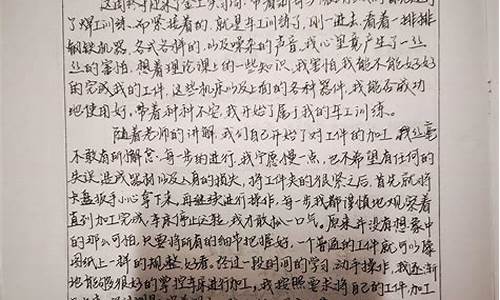 这周终于迎来了金工实习周，带着
了焊工训练，而紧接着的，就是车工训练了，刚一进去，看着一排排
钢铁机器，各式各样的，以及嘈杂的声音，我心里竟产生了一丝
丝的害怕，想着理论课上的一些知识，我害怕我能不能好好
的完成我的工件，这些机床以及上面的各种器件，我能否成功
地使用好，带着种种不安，我开始了属于我的车工训练。
随着老师的讲解，我们自己开始了对工件的加工，我丝毫
不敢有所懈怠，每一步的进行，我宁愿慢一点，也不希望有任何的
失误，造成器材以及人身的损失，将工件夹的很紧之后，首先就将
卡盘扳手小心拿下来，再继续进行操作，每一步我都谨慎地观察着
直到加工完成，车床停止运转，我才敢松一口气。原来并没有想象中
的那么可怕，只要将所有的细节把握好，一个普通的工件就可以像
图纸上一样的规整、好看。经过一段时间的学习、动手操作，我逐渐
地能够很好的掌控车床进行加工，我按照需求将自己的工件加